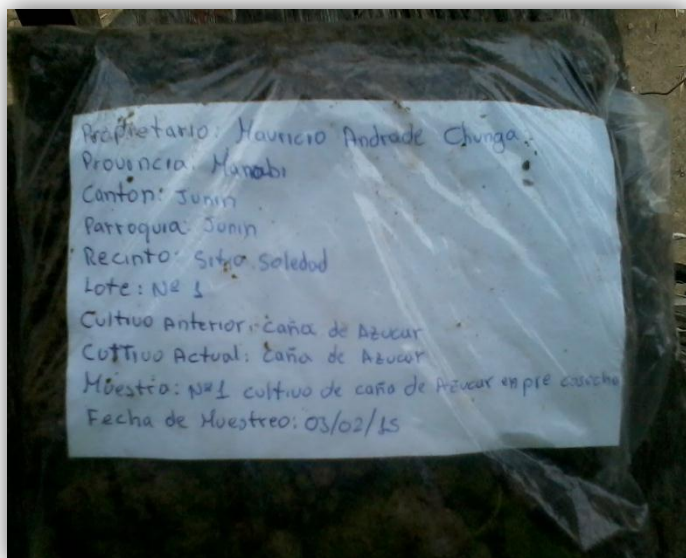 Propietario: Mauricio Andrade Chunga.
Provencia: Manabi
Canton: Junin
Parroquia: Junin
Recinto: Sitio Soledad
Lote: Nº 1
Cultivo Anterior: caña de Azucar
Cultivo Actual: caña de Azucar
Muestra: Nº1 cultivo de caña de Azucar en pre cosecha
Fecha de Muestreo: 03/02/15